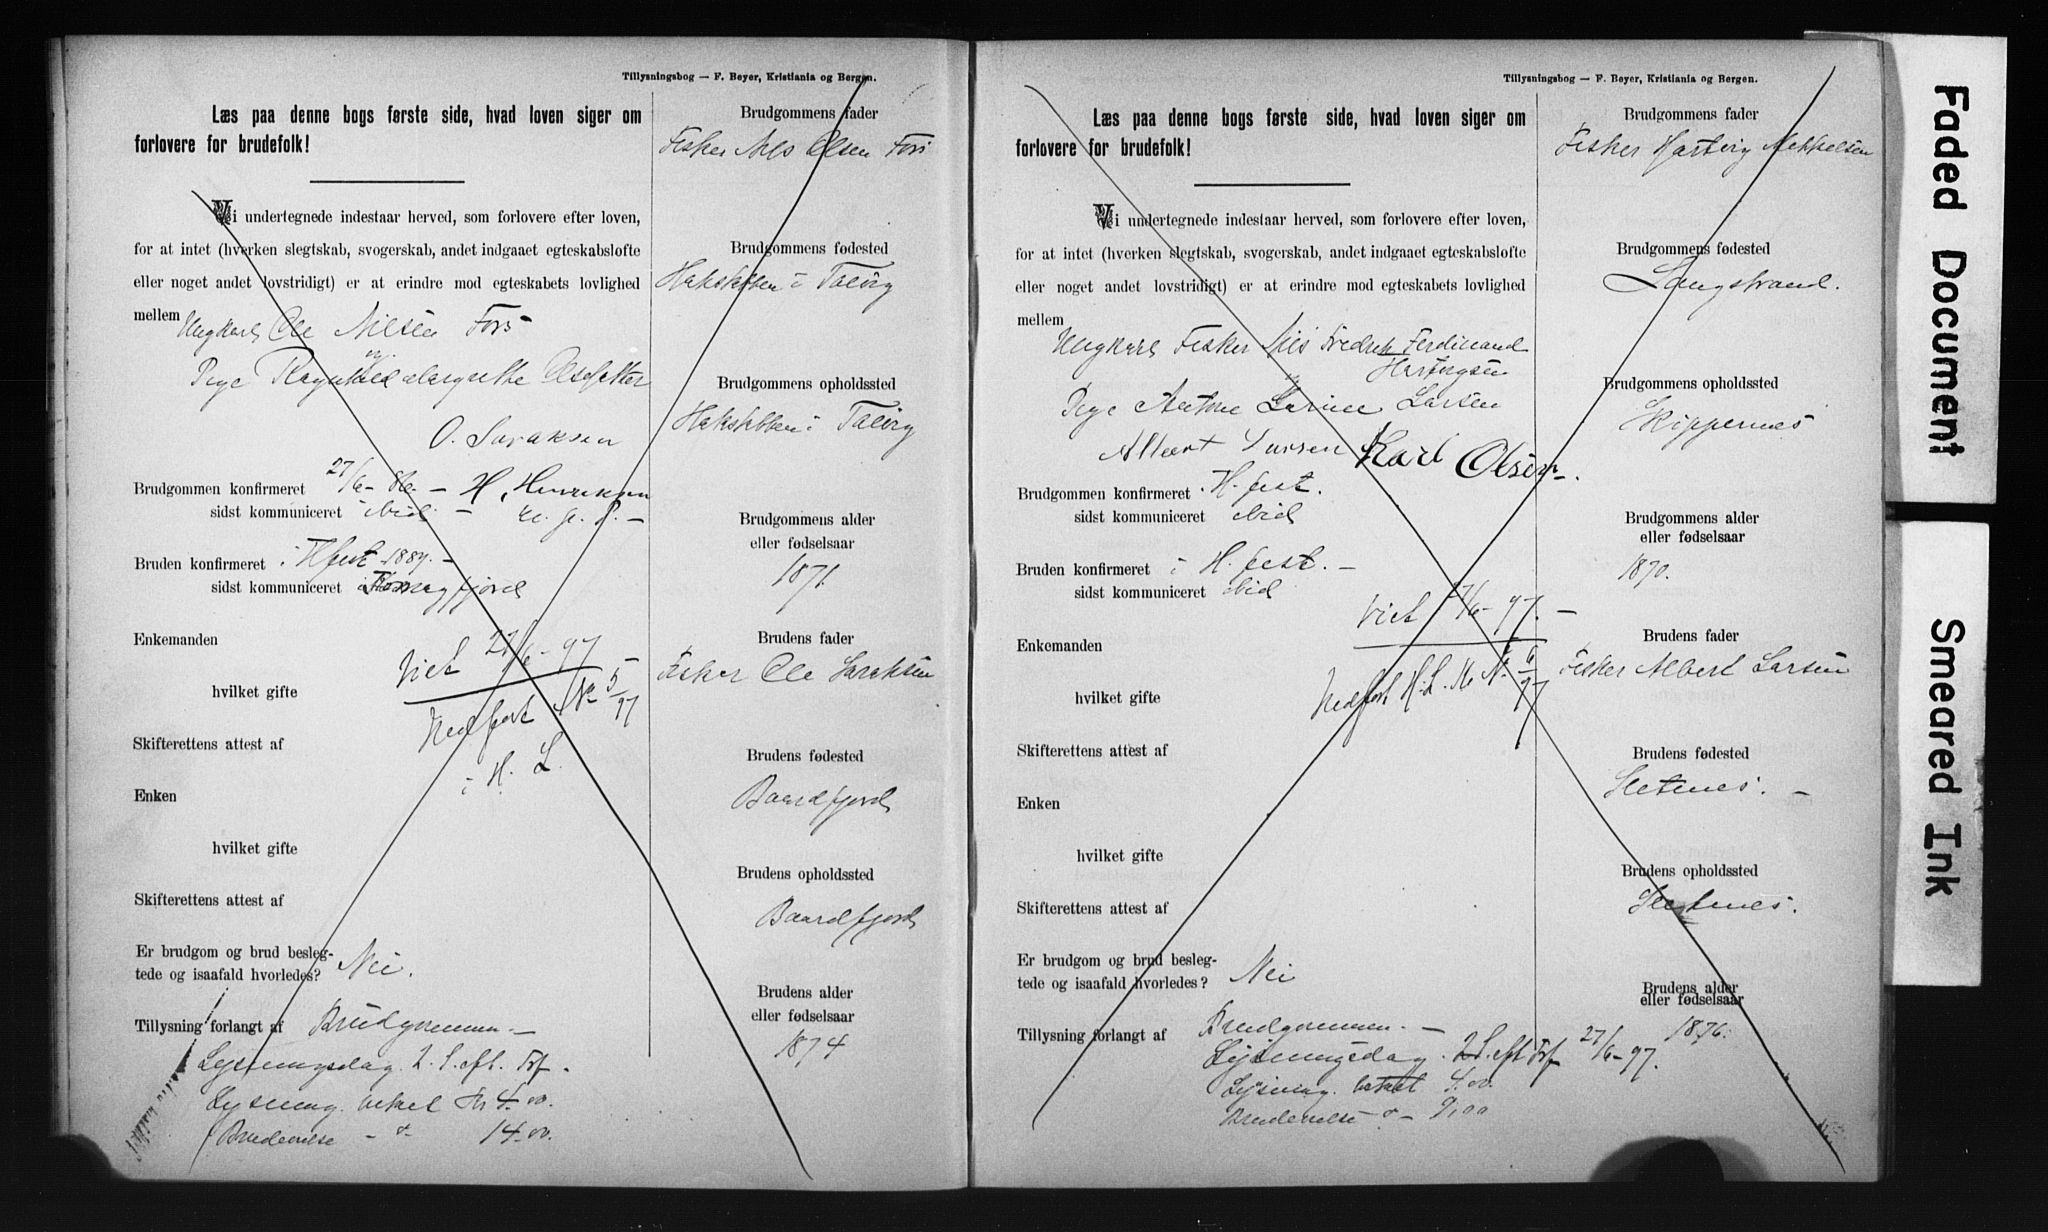 Tillysningsbog — F. Beyer, Kristiania og Bergen.
Læs paa denne bogs første side, hvad loven siger om
forlovere for brudefolk!
Vi undertegnede indestaar herved, som forlovere efter loven,
for at intet (hverken slegtskab, svogerskab, andet indgaaet egteskabsløfte
eller noget andet lovstridigt) er at erindre mod egteskabets lovlighed
mellem Ungkarl Ole Nilsen Fors
Pige Margrethe Olsdatter
O. Isaksen
Brudgommen konfirmeret 27/6- 86 - H. Henriksen
sidst kommuniceret ibid. -
Bruden konfirmeret i Hfest 1889. -
sidst kommuniceret i
Enkemanden
Viet 27/6- 97 -
hvilket gifte
Nedført No 5/97
Skifterettens attest af
i H. L.
Enken
hvilket gifte
Skifterettens attest af
Er brudgom og brud besleg-
tede og isaafald hvorledes? Nei.
Tillysning forlangt af Brudgommen -
Lysningsdag 2. S. eft. Tref.
Lysning betalt Kr 4.00.
Brudevielse - do - 14.00.
Brudgommens fader
Fisker Nils Olsen Fors
Brudgommens fødested
i Talvig
Brudgommens opholdssted
i Talvig
Brudgommens alder
eller fødselsaar
1871.
Brudens fader
Fisker Ole Isaksen
Brudens fødested
Baardfjord
Brudens opholdssted
Baardfjord
Brudens alder
eller fødselsaar
1874
Tillysningsbog — F. Beyer, Kristiania og Bergen.
Læs paa denne bogs første side, hvad loven siger om
forlovere for brudefolk!
Vi undertegnede indestaar herved, som forlovere efter loven,
for at intet (hverken slegtskab, svogerskab, andet indgaaet egteskabsløfte
eller noget andet lovstridigt) er at erindre mod egteskabets lovlighed
mellem
Ungkarl Fisker Nils Fredrik Ferdinand
Hartvigsen
Pige Antone Larine Larsen
Albert Larsen Karl Olsen.
Brudgommen konfirmeret i H.fest.
sidst kommuniceret ibid
Bruden konfirmeret i H. fest. -
sidst kommuniceret ibid
Viet 27/6- 97. -
Enkemanden
hvilket gifte
Nedført H. L. No 6/97
Skifterettens attest af
Enken
hvilket gifte
Skifterettens attest af
Er brudgom og brud besleg-
tede og isaafald hvorledes? Nei
Tillysning forlangt af Brudgommen. -
Lysningsdag 2 S. eft Tref 27/6-97.
Lysning betalt 4.00.
Brudevielse do - 9,00
Brudgommens fader
Fisker Hartvig Mikkelsen
Brudgommens fødested
Langstrand.
Brudgommens opholdssted
Skippernes
Brudgommens alder
eller fødselsaar
1870.
Brudens fader
Fisker Albert Larsen
Brudens fødested
Sletnes. -
Brudens opholdssted
Sletnes.
Brudens alder
eller fødselsaar
1876.
Faded Document
Smeared Ink